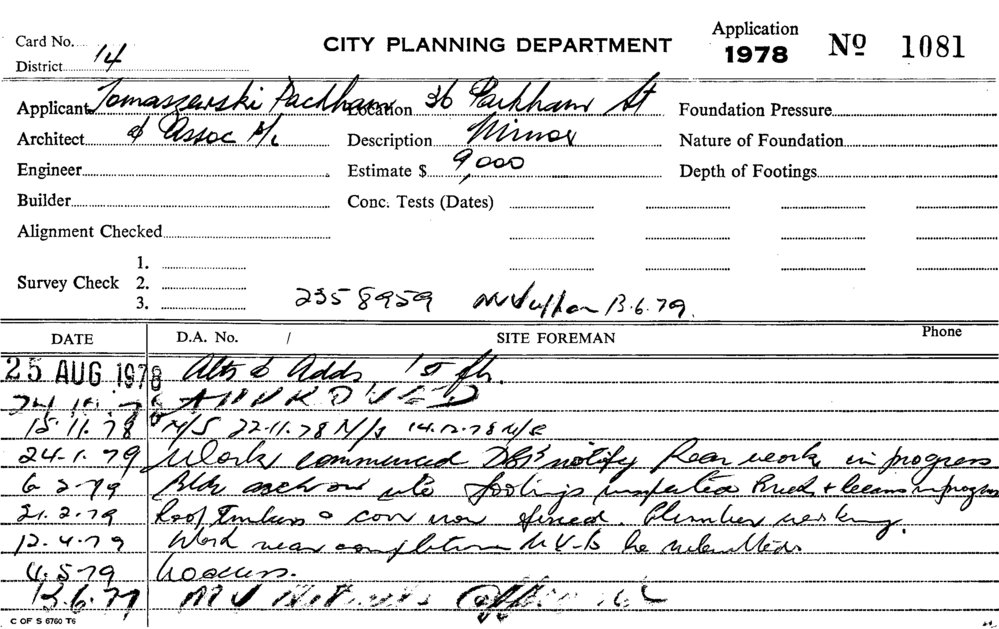 Card No.
District 14
CITY PLANNING DEPARTMENT
Application
1978 Nº 1081
Applicant Tomaszewski Packham Location 36 Parkham St Foundation Pressure
Architect & Assoc P/L Description Minor Nature of Foundation
Engineer Estimate $ 9,000 Depth of Footings
Builder Conc. Tests (Dates)
Alignment Checked
1.
Survey Check 2.
3. 2358959 13.6.79
DATE D.A. No. / SITE FOREMAN Phone
25 AUG 1978 Alts & Adds 1st flr.
APPROVED
15.11.78 N/S 22.11.78 N/S 14.12.78 N/S
24.1.79 Work commenced notify Rear work in progress
6 2 79 Bldr site footings inspected Brick + beams in progress
21.2.79 Roof timbers & now fixed. Plumber working.
12.4.79 Work near completion to be submitted
4.5.79 No access.
13.6.79
C OF S 6760 T6